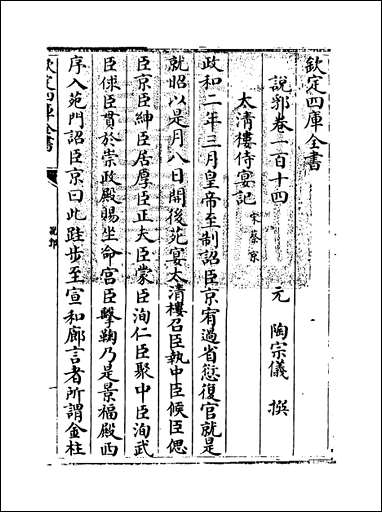 欽定四庫全書
說郛卷一百十四
元 陶宗儀 撰
太清樓侍宴記 宋蔡京
政和二年三月皇帝至制詔臣京宥過省愆復官就是
就昭以是月八日開後苑宴太清樓召臣執中臣俟臣偲
臣京臣紳臣居厚臣正夫臣蒙臣洵仁臣聚中臣洵武
臣俅臣貫於崇政殿賜坐命宫臣擊鞠乃是景福殿西
序入苑門詔臣京曰此跬步至宣和廊言者所謂金柱
欽定四庫全書
說郛